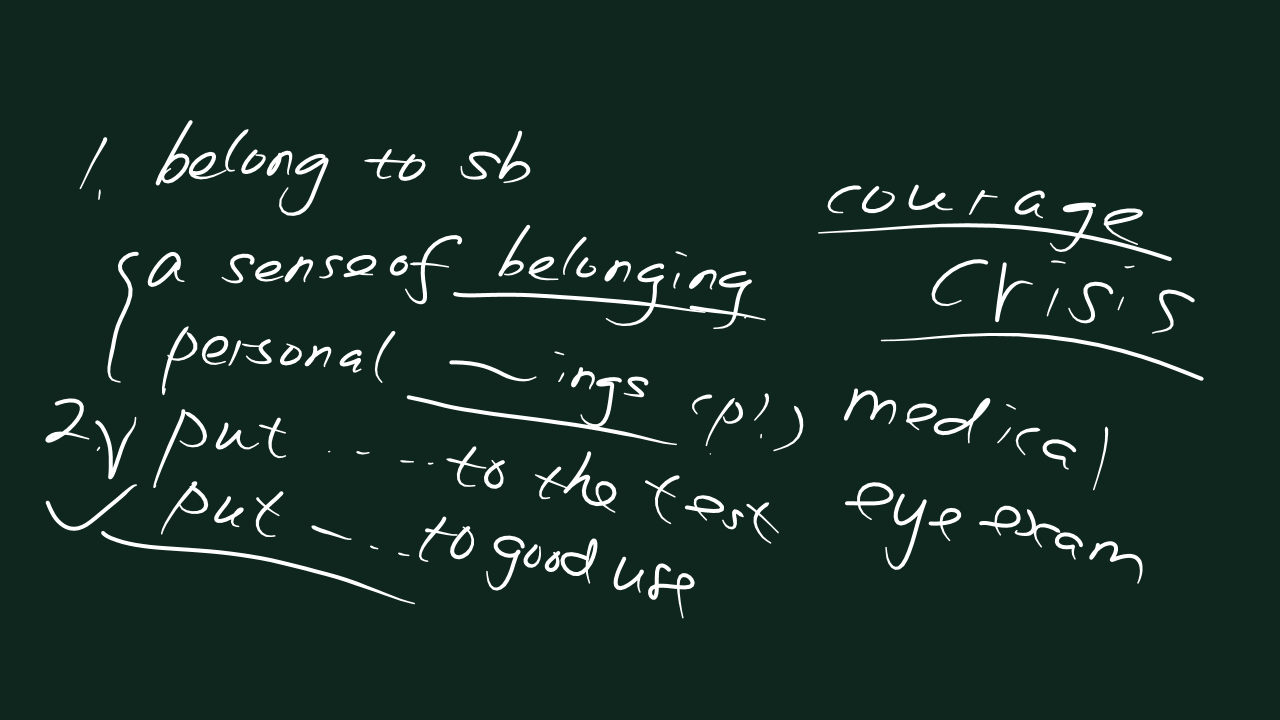 1. belong to sb
a sense of belonging
personal ~ings (pl.)
2. put ..... to the test
put ~... to good use
courage
crisis
medical
eye exam